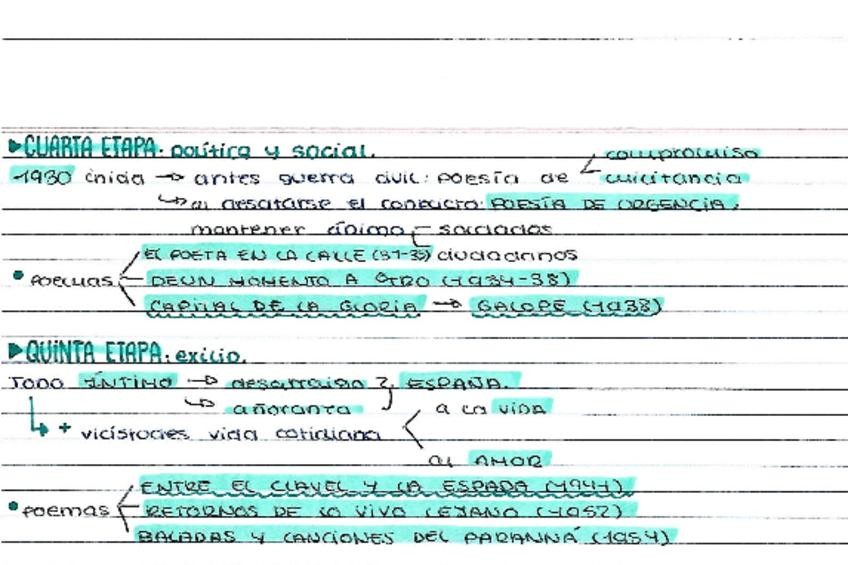 ►CUARTA ETAPA: política y social.
-1930 inicia → antes guerra civil: poesía de < compromiso
cuicitancia
↳ al desatarse el conflicto: POESÍA DE URGENCIA,
mantener ánimo soldados
EL POETA EN LA CALLE (31-35) ciudadanos
• poemas DE UN MOMENTO A OTRO (1934-38)
CAPITAL DE LA GLORIA → GALOPE (1938)
►QUINTA ETAPA: exilio.
TONO ÍNTIMO → desarraigo ESPAÑA.
↳ añoranza
a la VIDA
↳ + vicistodes vida cotidiana <
al AMOR
ENTRE EL CLAVEL Y LA ESPADA (1941)
• poemas RETORNOS DE LO VIVO LEJANO (1952)
BALADAS Y CANCIONES DEL PARANNÁ (1954)